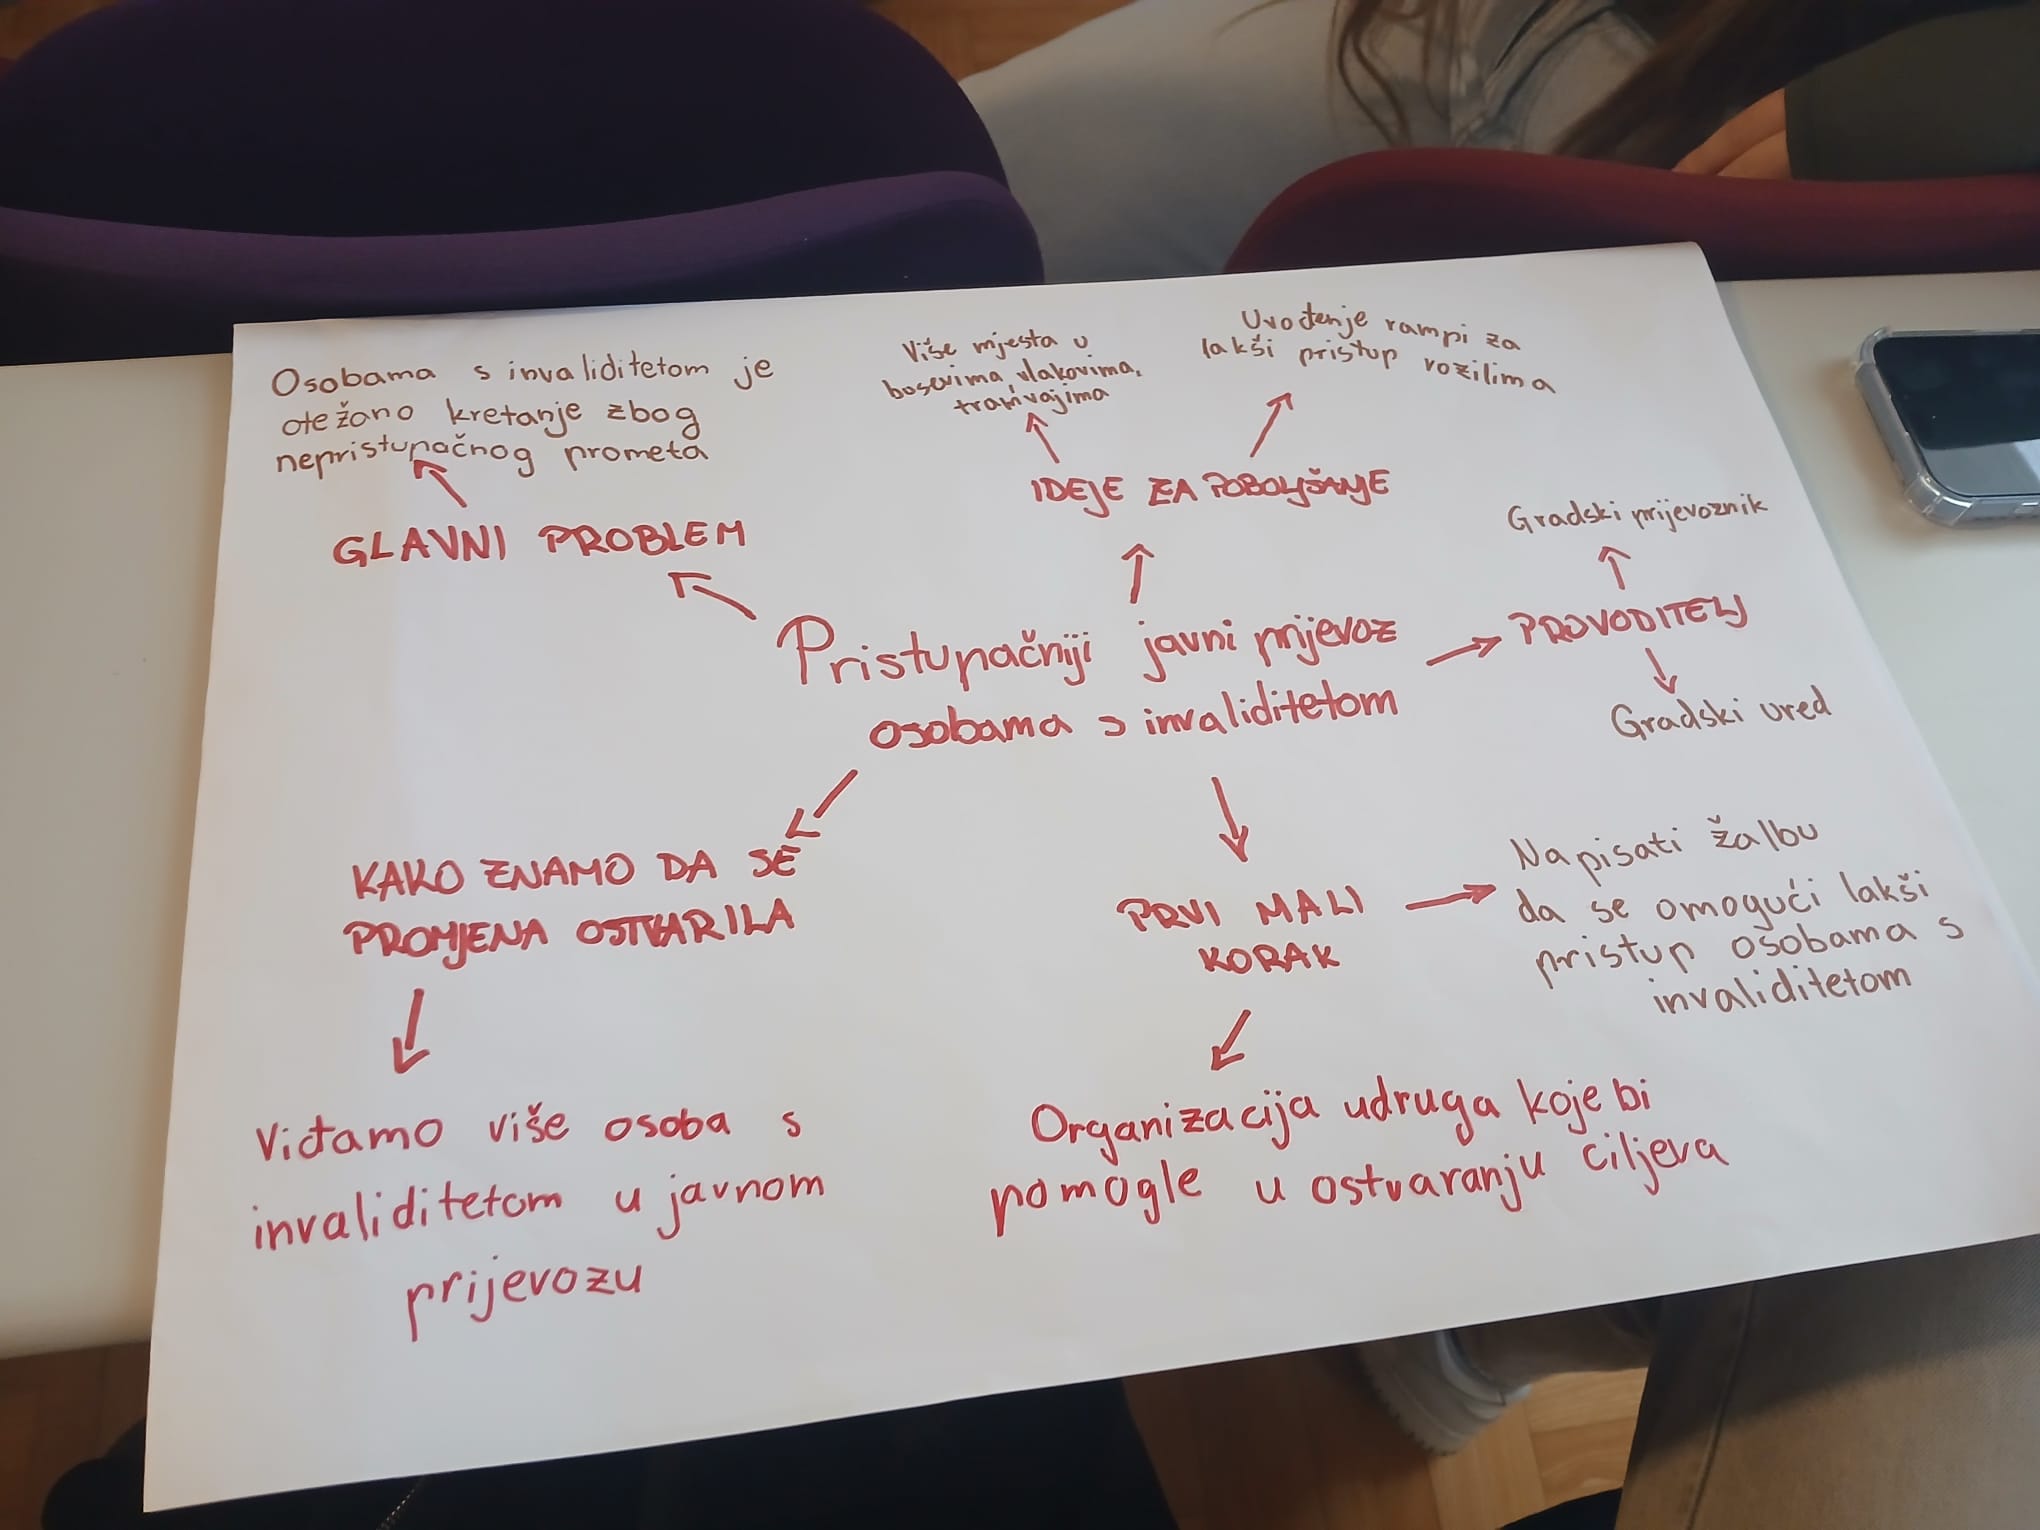 Osobama s invaliditetom je
otežano kretanje zbog
nepristupačnog prometa
GLAVNI PROBLEM
Više mjesta u
busevima, vlakovima,
tramvajima
Uvođenje rampi za
lakši pristup vozilima
IDEJE ZA POBOLJŠANJE
Gradski prijevoznik
PROVODITELJ
Gradski ured
Pristupačniji javni prijevoz
osobama s invaliditetom
KAKO ZNAMO DA SE
PROMJENA OSTVARILA
Viđamo više osoba s
invaliditetom u javnom
prijevozu
PRVI MALI
KORAK
Napisati žalbu
da se omogući lakši
pristup osobama s
invaliditetom
Organizacija udruga koje bi
pomogle u ostvaranju ciljeva